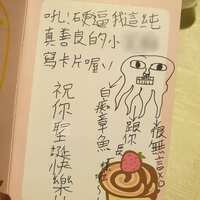 吼!硬逼我這純
真善良的小
寫卡片喔!
祝你聖誕快樂
白痴章魚
跟你長
很無言